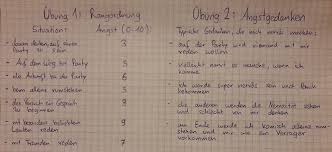 Übung 1: Rangordnung
Situation: Angst (0-10)
- daran denken auf einer Party zu sein 3
- Auf dem Weg zur Party 5
- die Ankunft bei der Party 6
- beim alleine rumstehen 5
- der Versuch ein Gespräch zu beginnen 8
- mit besonders beliebten Leuten reden 9
- mit Fremden reden 7
Übung 2: Angstgedanken
Typische Gedanken, die mich nervös machen:
- auf der Party wird niemand mit mir reden wollen
- vielleicht nervt es manche, wenn ich komme
- ich werde super nervös sein und Bauch bekommen
- die anderen werden die Nervosität sehen und schlecht von mir denken
- am Ende werde ich komisch alleine rumstehen und mir wie ein Versager vorkommen